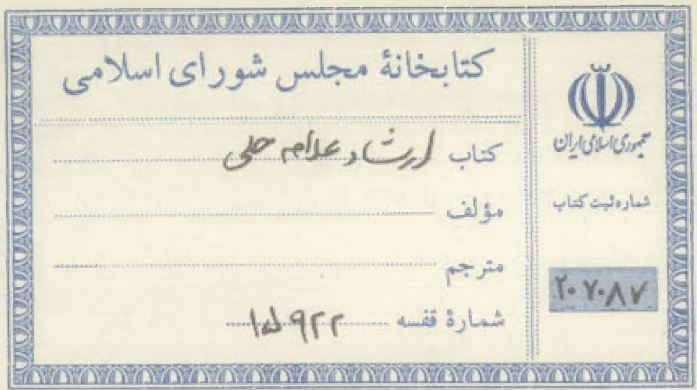 کتابخانهٔ مجلس شورای اسلامی
کتاب ارشاد علامه حلی
مؤلف
مترجم
شمارهٔ قفسه ۱۵۹۲۲
جمهوری اسلامی ایران
شماره ثبت کتاب
۲۰۷۰۸۷